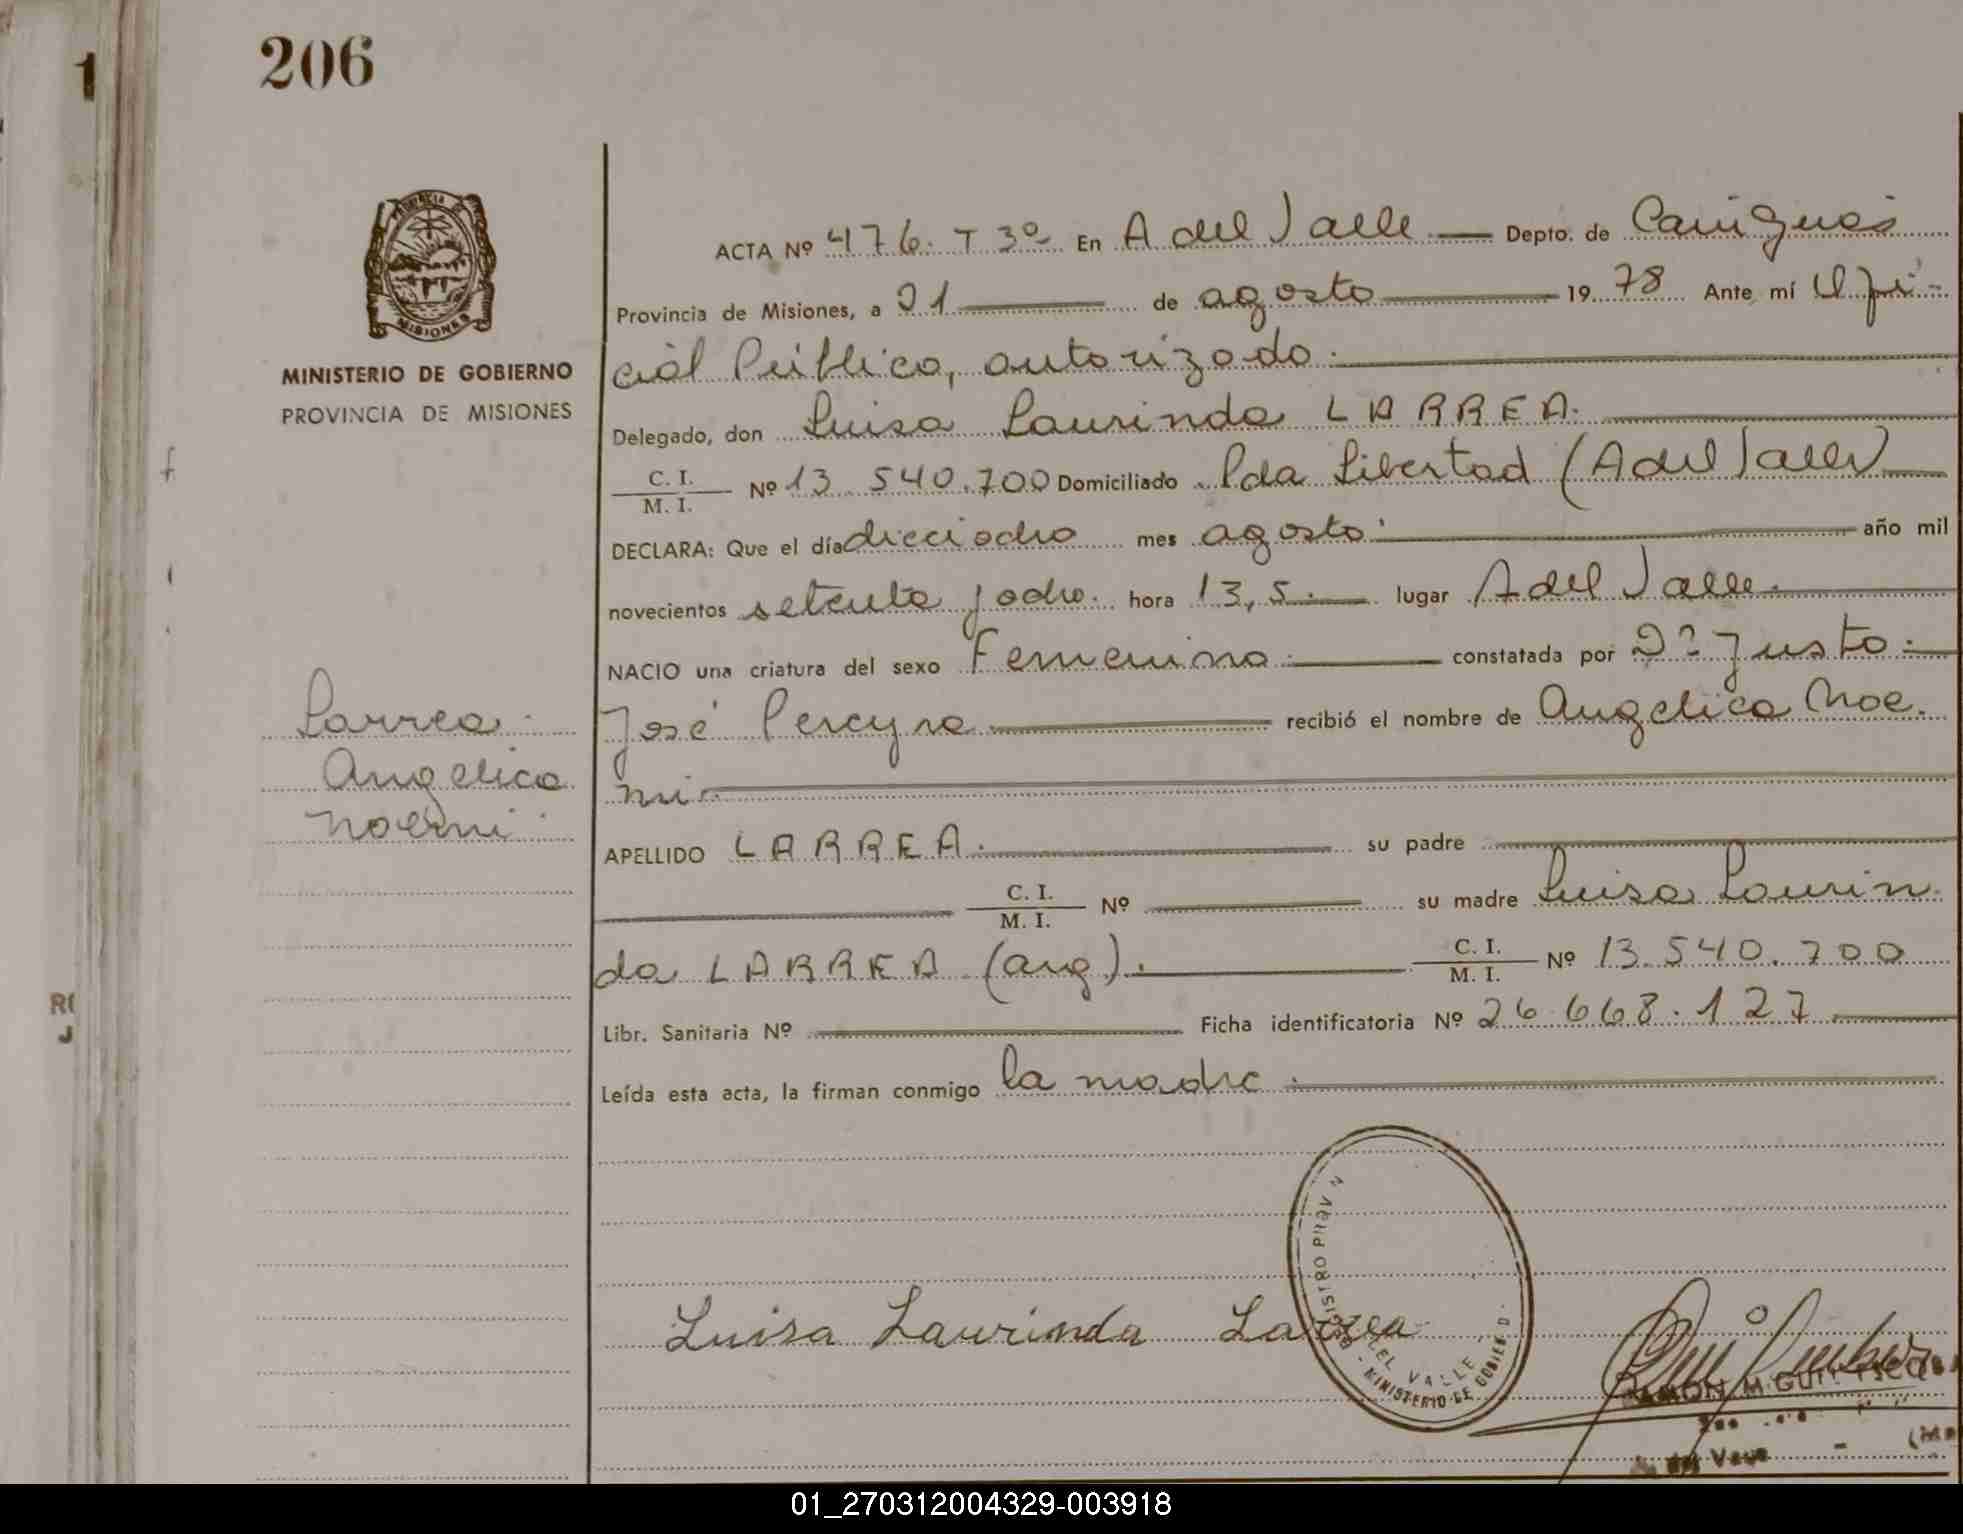 1
206
PROVINCIA DE
MISIONES
MINISTERIO DE GOBIERNO
PROVINCIA DE MISIONES
Larrea.
Angelica
Noemi
ACTA Nº 476. T 3º En A del Valle — Depto. de Cainguás
Provincia de Misiones, a 21 — de agosto — 19 78 Ante mí Ofi-
cial Público, autorizado.
Delegado, don Luisa Laurinda LARREA.
C. I.
M. I. Nº 13.540.700 Domiciliado Pda Libertad (A del Valle)
DECLARA: Que el día dieciocho mes agosto. — año mil
novecientos setenta y ocho. hora 13,5. — lugar A del Valle.
NACIO una criatura del sexo Femenino. — constatada por Dr Justo
José Pereyra — recibió el nombre de Angelica Noe
mi
APELLIDO LARREA. — su padre
C. I.
M. I. Nº — su madre Luisa Laurin
da LARREA (arg). — C. I.
M. I. Nº 13.540.700
Libr. Sanitaria Nº — Ficha identificatoria Nº 26.668.127
Leída esta acta, la firman conmigo la madre.
Luisa Laurinda Larrea
DEL VALLE
MINISTERIO DE GOBIERNO
RAMON MIGUEL
del Valle
01_270312004329-003918